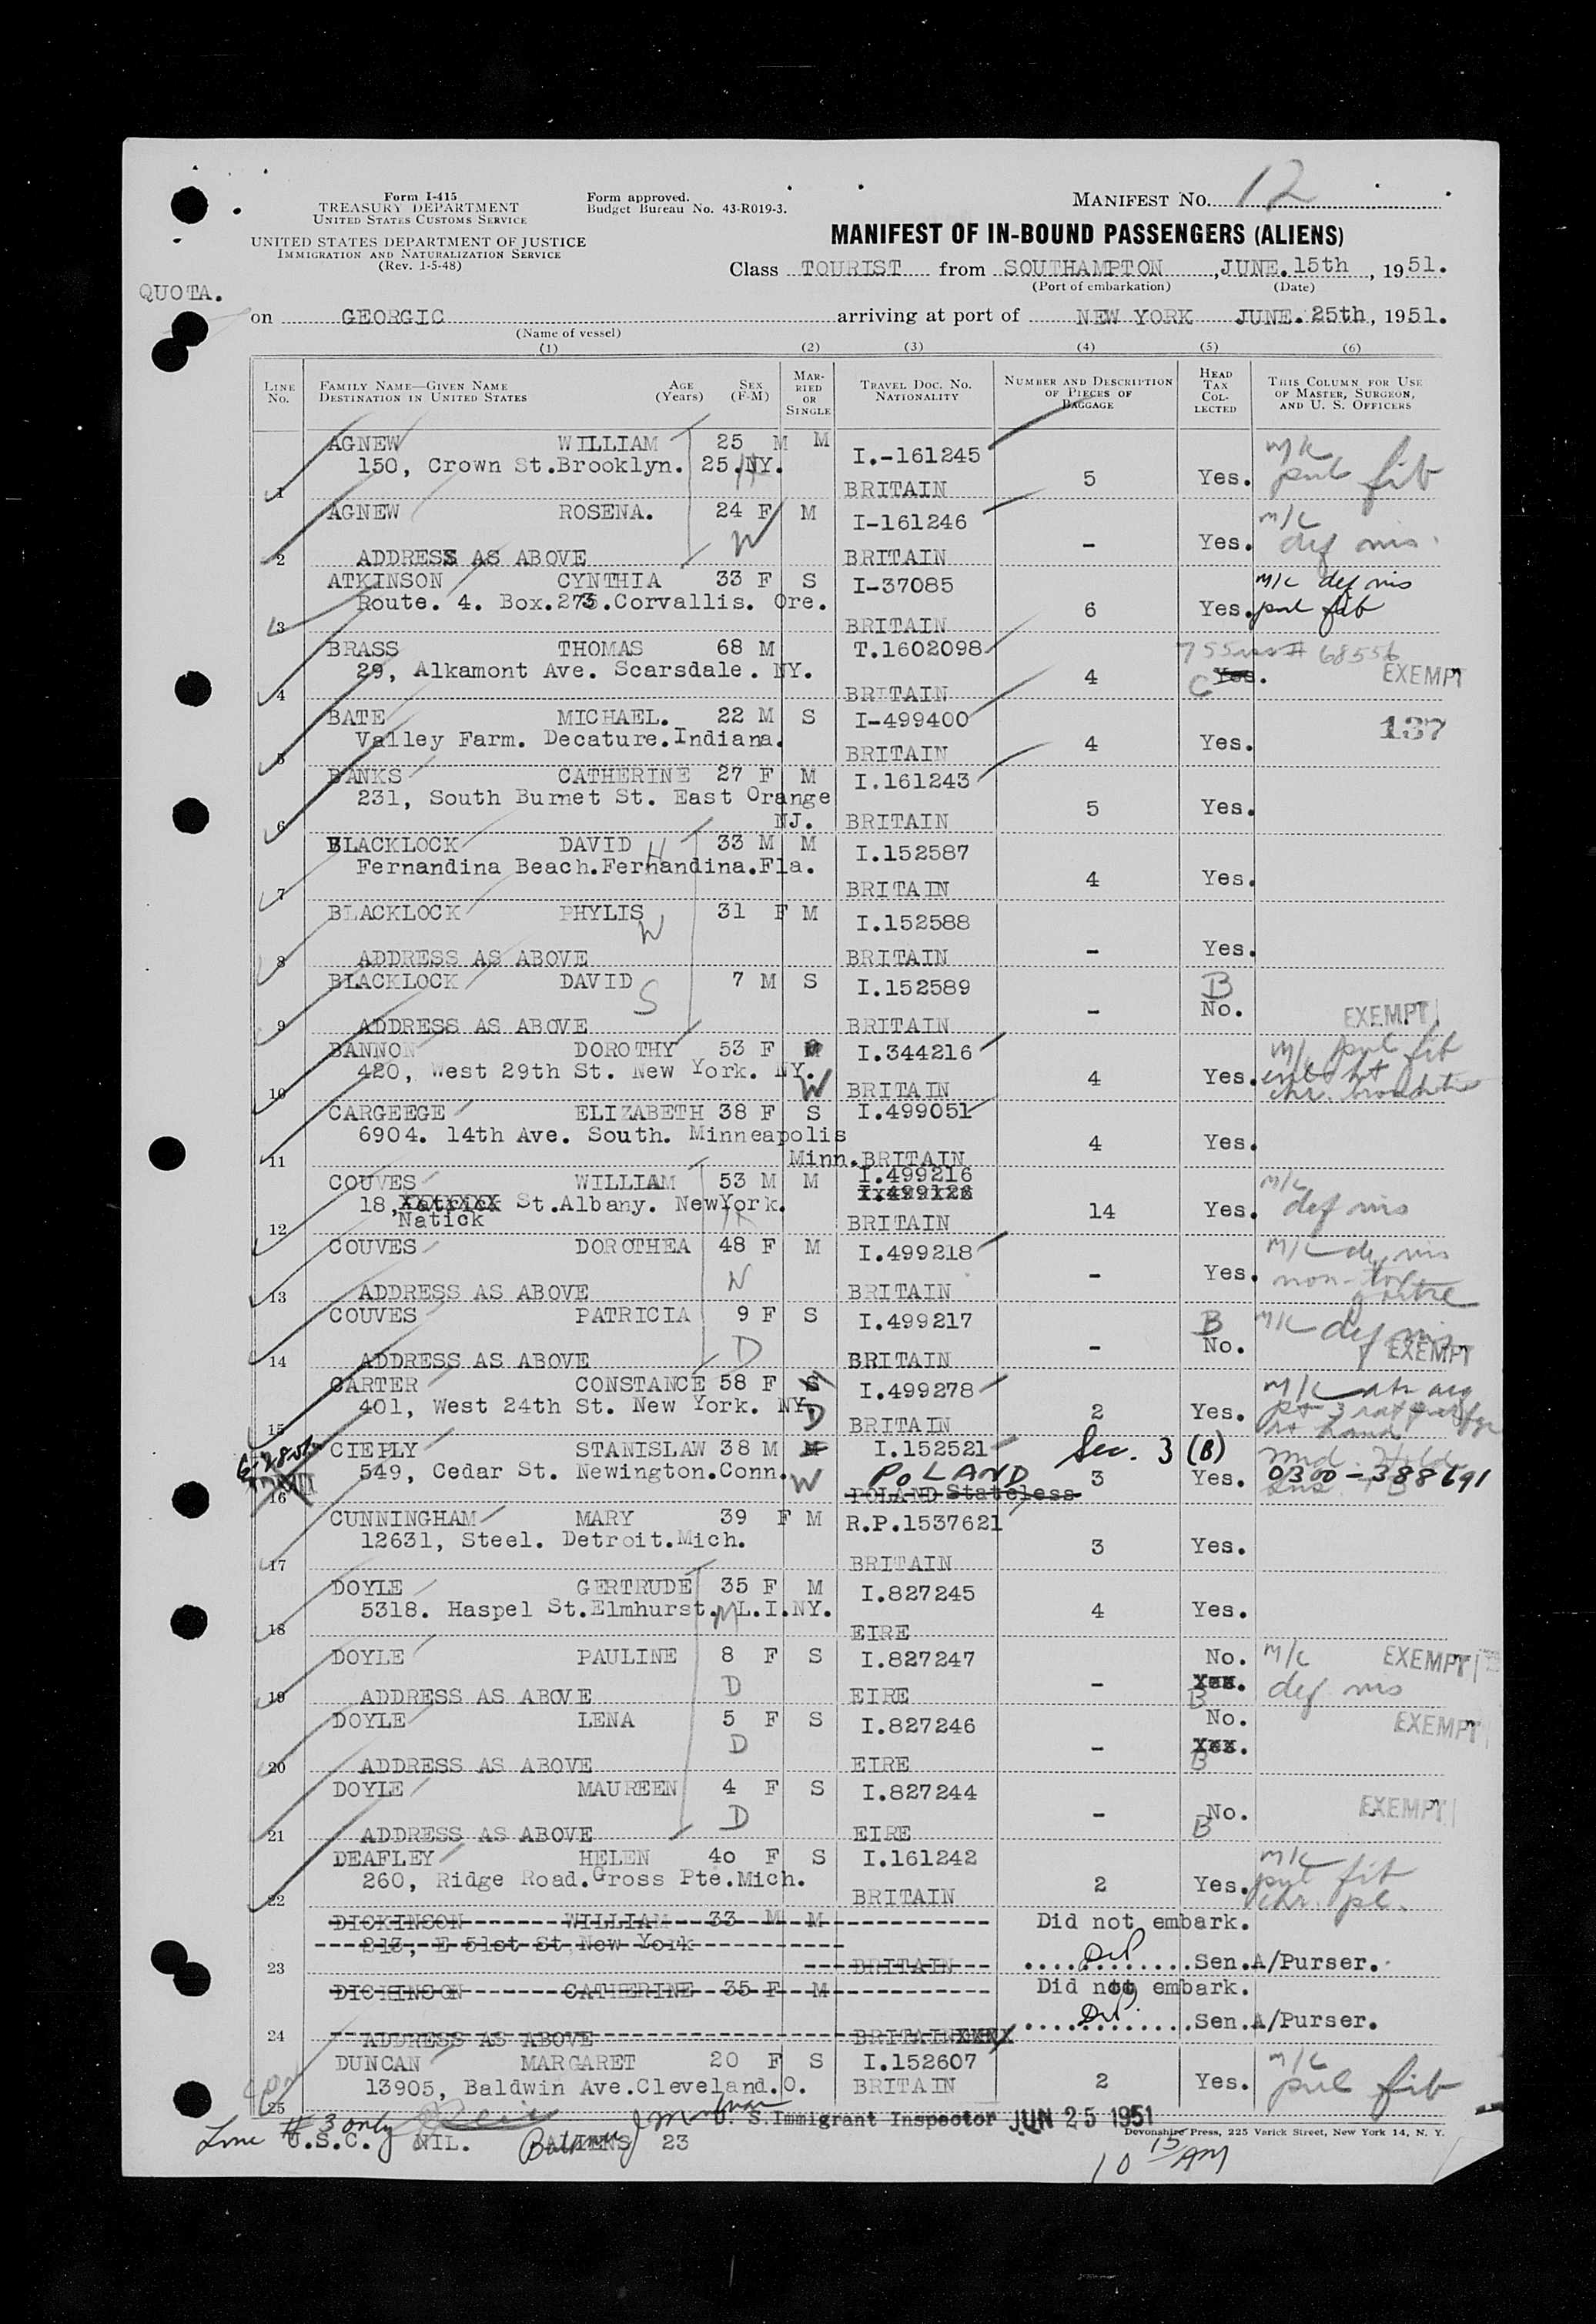 Form I-415
TREASURY DEPARTMENT
UNITED STATES CUSTOMS SERVICE
UNITED STATES DEPARTMENT OF JUSTICE
IMMIGRATION AND NATURALIZATION SERVICE
(Rev. 1-5-48)
Form approved.
Budget Bureau No. 43-R019-3.
MANIFEST NO. 12
MANIFEST OF IN-BOUND PASSENGERS (ALIENS)
Class TOURIST from SOUTHAMPTON, JUNE. 15th, 1951.
(Port of embarkation) (Date)
QUOTA.
on GEORGIC arriving at port of NEW YORK JUNE. 25th, 1951.
(Name of vessel)
(1) (2) (3) (4) (5) (6)
LINE NO. FAMILY NAME—GIVEN NAME DESTINATION IN UNITED STATES AGE (Years) SEX (F-M) MARRIED OR SINGLE TRAVEL DOC. NO. NATIONALITY NUMBER AND DESCRIPTION OF PIECES OF BAGGAGE HEAD TAX COLLECTED THIS COLUMN FOR USE OF MASTER, SURGEON, AND U. S. OFFICERS
AGNEW WILLIAM 25 M M I.-161245 m/c
150, Crown St.Brooklyn. 25.NY. H
1 BRITAIN 5 Yes. pul fib
AGNEW ROSENA. 24 F M I-161246 m/c
W
2 ADDRESS AS ABOVE BRITAIN - Yes. def vis.
ATKINSON CYNTHIA 33 F S I-37085 m/c def vis
Route. 4. Box.273.Corvallis. Ore.
3 BRITAIN 6 Yes. pul fib
BRASS THOMAS 68 M T.1602098 68556
29, Alkamont Ave. Scarsdale. NY.
4 BRITAIN 4 C Yes. EXEMPT
BATE MICHAEL. 22 M S I-499400 137
Valley Farm. Decature.Indiana.
5 BRITAIN 4 Yes.
BANKS CATHERINE 27 F M I.161243
231, South Burnet St. East Orange
6 NJ. BRITAIN 5 Yes.
BLACKLOCK DAVID 33 M M I.152587
H
Fernandina Beach.Fernandina.Fla.
7 BRITAIN 4 Yes.
BLACKLOCK PHYLIS 31 F M I.152588
W
8 ADDRESS AS ABOVE BRITAIN - Yes.
BLACKLOCK DAVID 7 M S I.152589 B
S
9 ADDRESS AS ABOVE BRITAIN - No. EXEMPT
BANNON DOROTHY 53 F M I.344216 m/c pul fib
420, West 29th St. New York. NY.
10 W BRITAIN 4 Yes. enl ht
chr. bronchitis
CARGEEGE ELIZABETH 38 F S I.499051
6904. 14th Ave. South. Minneapolis
11 Minn. BRITAIN 4 Yes.
COUVES WILLIAM 53 M M I.499216 m/c
18, St.Albany. NewYork.
Natick H
12 BRITAIN 14 Yes. def vis
COUVES DOROTHEA 48 F M I.499218 m/c def vis
W
13 ADDRESS AS ABOVE BRITAIN - Yes. non-tox goitre
COUVES PATRICIA 9 F S I.499217 B m/c def vis
D
14 ADDRESS AS ABOVE BRITAIN - No. EXEMPT
CARTER CONSTANCE 58 F S I.499278 m/c
401, West 24th St. New York. NY.
15 D BRITAIN 2 Yes. hand
CIEPLY STANISLAW 38 M M I.152521 Sec. 3 (B)
549, Cedar St. Newington.Conn. W POLAND
16 POLAND Stateless 3 Yes. 0300-388691
CUNNINGHAM MARY 39 F M R.P.1537621
12631, Steel. Detroit.Mich.
17 BRITAIN 3 Yes.
DOYLE GERTRUDE 35 F M I.827245
5318. Haspel St.Elmhurst. L.I.NY.
M
18 EIRE 4 Yes.
DOYLE PAULINE 8 F S I.827247 No. m/c EXEMPT
D
19 ADDRESS AS ABOVE EIRE - Yes. B def vis
DOYLE LENA 5 F S I.827246 No. EXEMPT
D
20 ADDRESS AS ABOVE EIRE - Yes. B
DOYLE MAUREEN 4 F S I.827244
D
21 ADDRESS AS ABOVE EIRE - No. B EXEMPT
DEAFLEY HELEN 40 F S I.161242 m/c
260, Ridge Road.Gross Pte.Mich.
22 BRITAIN 2 Yes. pul fib
chr. pl.
DICKINSON WILLIAM 33 M M Did not embark.
213, E 51st St New York
23 BRITAIN Sen.A/Purser.
DICKINSON CATHERINE 35 F M Did not embark.
24 ADDRESS AS ABOVE BRITAIN Sen.A/Purser.
DUNCAN MARGARET 20 F S I.152607 m/c
13905, Baldwin Ave.Cleveland.O. BRITAIN 2 Yes. pul fib
25
Line #3 only U. S. Immigrant Inspector JUN 25 1951
U.S.C. NIL. ALIENS 23
Devonshire Press, 225 Varick Street, New York 14, N. Y.
10 15 AM